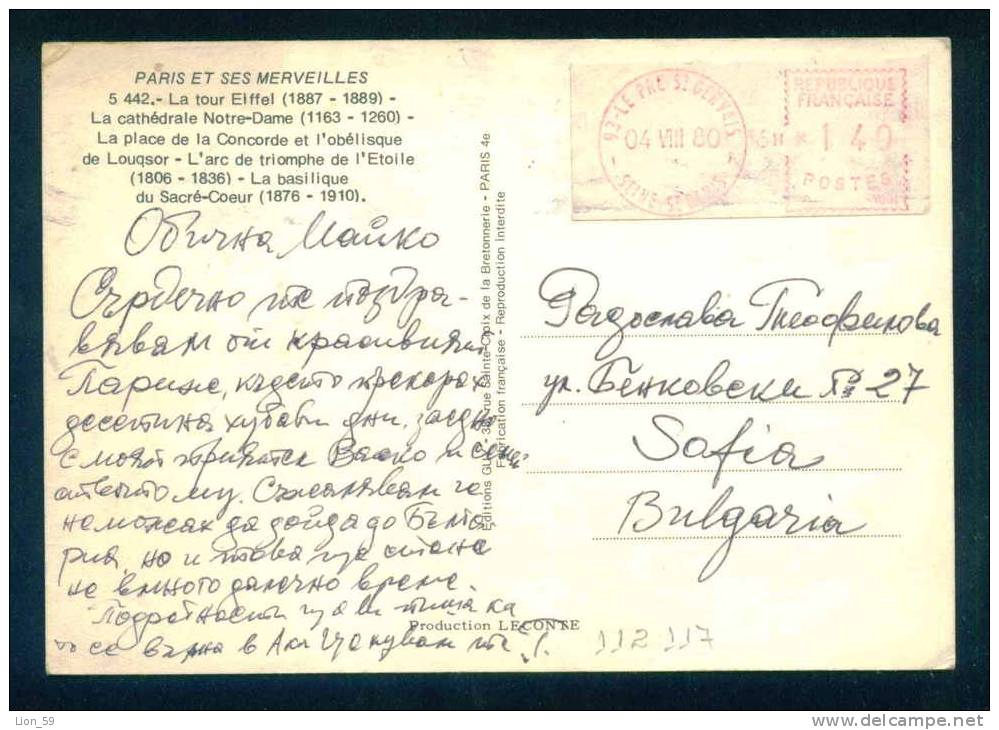 PARIS ET SES MERVEILLES
5 442.- La tour Eiffel (1887 - 1889) -
La cathédrale Notre-Dame (1163 - 1260) -
La place de la Concorde et l'obélisque
de Louqsor - L'arc de triomphe de l'Etoile
(1806 - 1836) - La basilique
du Sacré-Coeur (1876 - 1910).
93-LE PRE ST GERVAIS
04 VIII 80
SEINE-ST DENIS
REPUBLIQUE
FRANÇAISE
1 40
POSTES
Обична Майко
Сърдечно те поздра-
вявам от красивия
Париж, където прекарах
десетина хубави дни, заедно
с моят приятел Васко и семе
йството му. Съжалявам че
неможах да дойда до Бълга
рия, но и това ще стане
не в много далечно време.
Подробности ще ви пиша ка
то се върна в Ам Целувам те
Editions GUY - rue Sainte-Croix de la Bretonnerie - PARIS 4e
Fabrication française - Reproduction interdite
Радослава Теофилова
ул. Бенковски № 27
Sofia
Bulgaria
Production LECONTE
112 117
Lion_59
www.delcampe.net